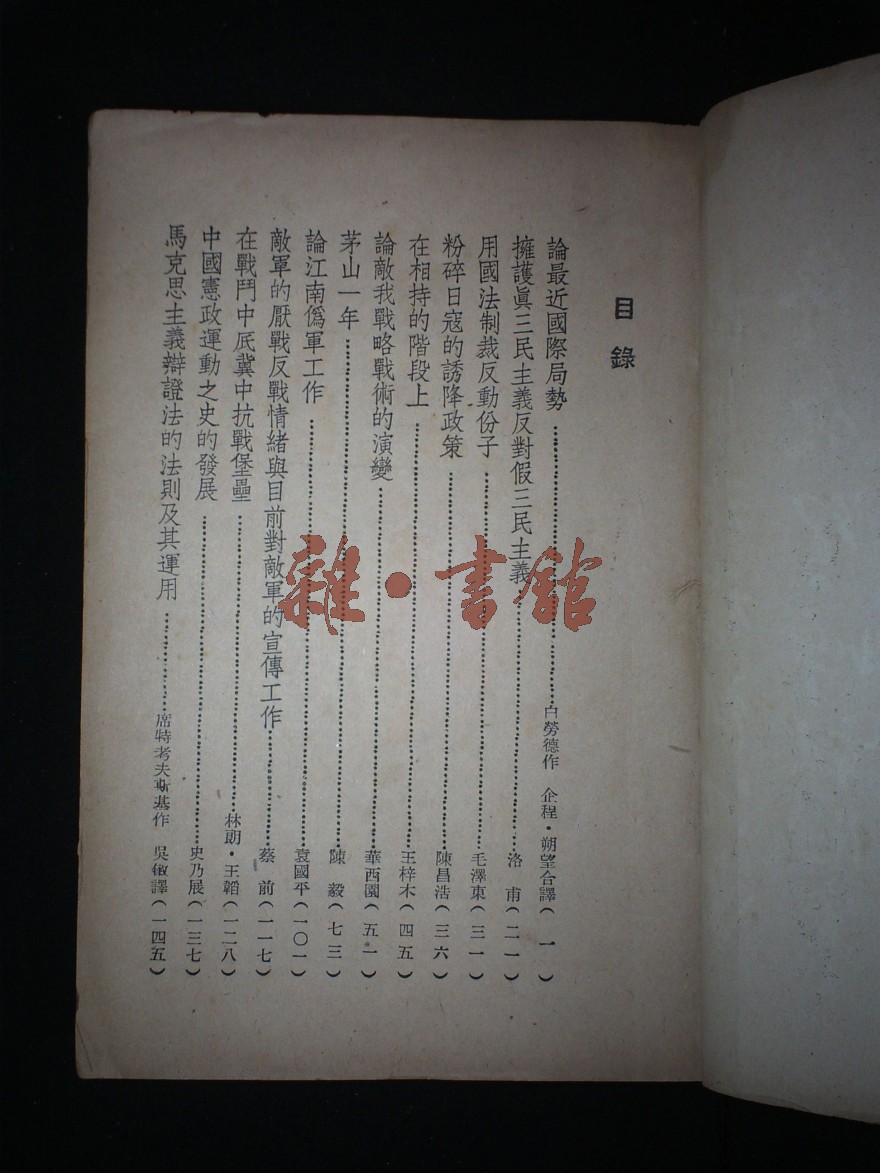 目錄
論最近國際局勢……白勞德作 企程·朔望合譯（一）
擁護眞三民主義反對假三民主義……洛甫（二一）
用國法制裁反動份子……毛澤東（三一）
粉碎日寇的誘降政策……陳昌浩（三六）
在相持的階段上……王梓木（四五）
論敵我戰略戰術的演變……華西園（五一）
茅山一年……陳毅（七三）
論江南僞軍工作……袁國平（一〇一）
敵軍的厭戰反戰情緒與目前對敵軍的宣傳工作……蔡前（一一七）
在戰鬥中底冀中抗戰堡壘……林朗·王韜（一二八）
中國憲政運動之史的發展……史乃展（一三七）
馬克思主義辯證法的法則及其運用……席特考夫斯基作 吳敏譯（一四五）
雜·書館